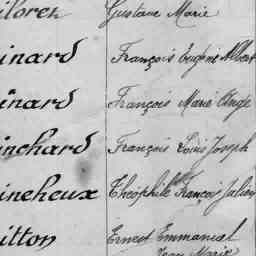 iloren Gustave Marie
inard François Eugène Albert
inard François Marie Ange
inchard François Louis Joseph
ineheux Théophile François Julien
itton Ernest Emmanuel
Jean Marie